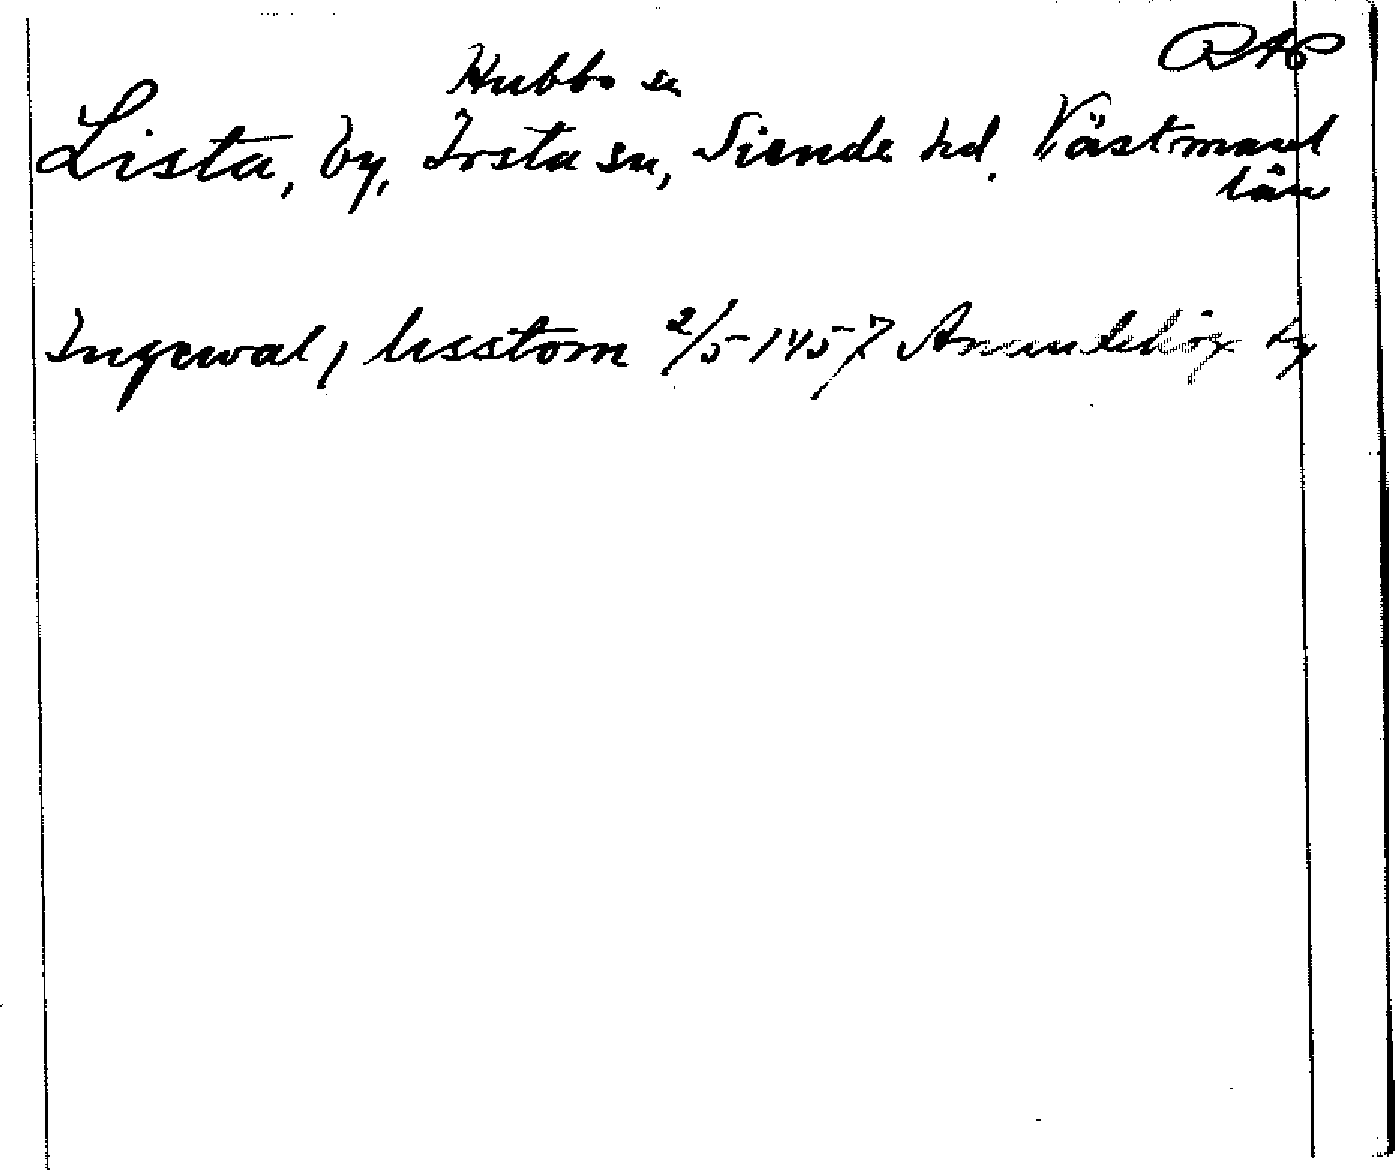 RAP
Hubbo sn
Lista, by, Irsta sn, Siende hd. Västmanl
län
Ingewal, lisstom 2/5 1457 Anundshög by